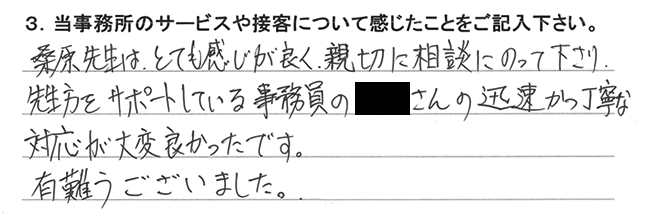 3. 当事務所のサービスや接客について感じたことをご記入下さい。
桑原先生は、とても感じが良く、親切に相談にのって下さり、
先生方をサポートしている事務員のさんの迅速かつ丁寧な
対応が大変良かったです。
有難うございました。